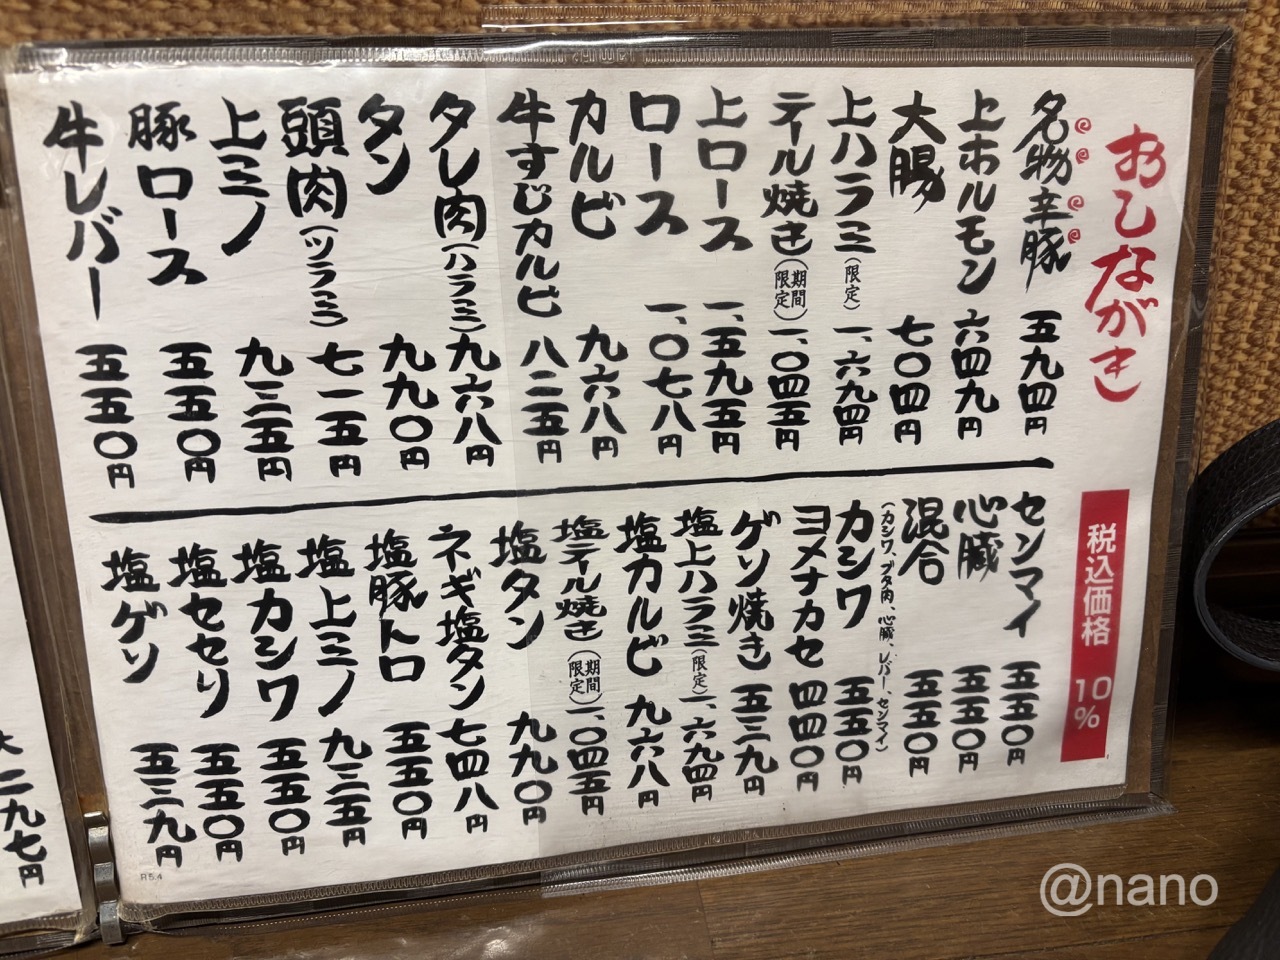 おしながき
税込価格 10%
名物辛豚 五九四円
上ホルモン 六四九円
大腸 七〇四円
上ハラミ(限定) 一、六九四円
テール焼き(期間限定) 一、〇四五円
上ロース 一、五九五円
ロース 一、〇七八円
カルビ 九六八円
牛すじカルビ 八二五円
タレ肉(ハラミ) 九六八円
タン 九九〇円
頭肉(ツラミ) 七一五円
上ミノ 九三五円
豚ロース 五五〇円
牛レバー 五五〇円
センマイ 五五〇円
心臓 五五〇円
混合 五五〇円
(カシワ、ブタ肉、心臓、レバー、センマイ)
カシワ 五五〇円
ヨメナカセ 四四〇円
ゲソ焼き 五三九円
塩上ハラミ(限定) 一、六九四円
塩カルビ 九六八円
塩テール焼き(期間限定) 一、〇四五円
塩タン 九九〇円
ネギ塩タン 七四八円
塩豚トロ 五五〇円
塩上ミノ 九三五円
塩カシワ 五五〇円
塩セセリ 五五〇円
塩ゲソ 五三九円
R5.4
二九七円
@nano